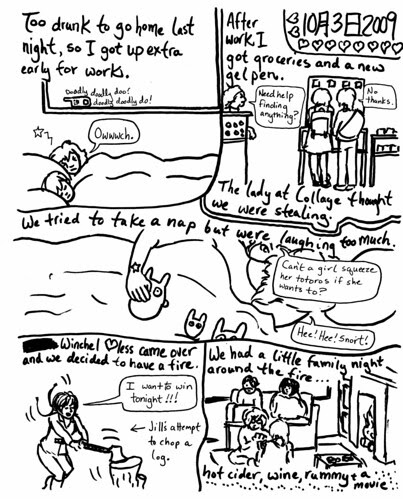 Too drunk to go home last
night, so I got up extra
early for work.
Doodly doodly doo!
doodly doodly do!
Owwwch.
10月3日2009
After
work I
got groceries and a new
gel pen.
Need help
finding
anything?
No
thanks.
The lady at Collage thought
we were stealing.
We tried to take a nap but were laughing too much.
Can't a girl squeeze
her totoros if she
wants to?
Hee! Hee! Snort!
Winchel ♡less came over
and we decided to have a fire.
I want to win
tonight!!!
← Jill's attempt
to chop a
log.
We had a little family night
around the fire...
hot cider, wine, rummy + a
movie